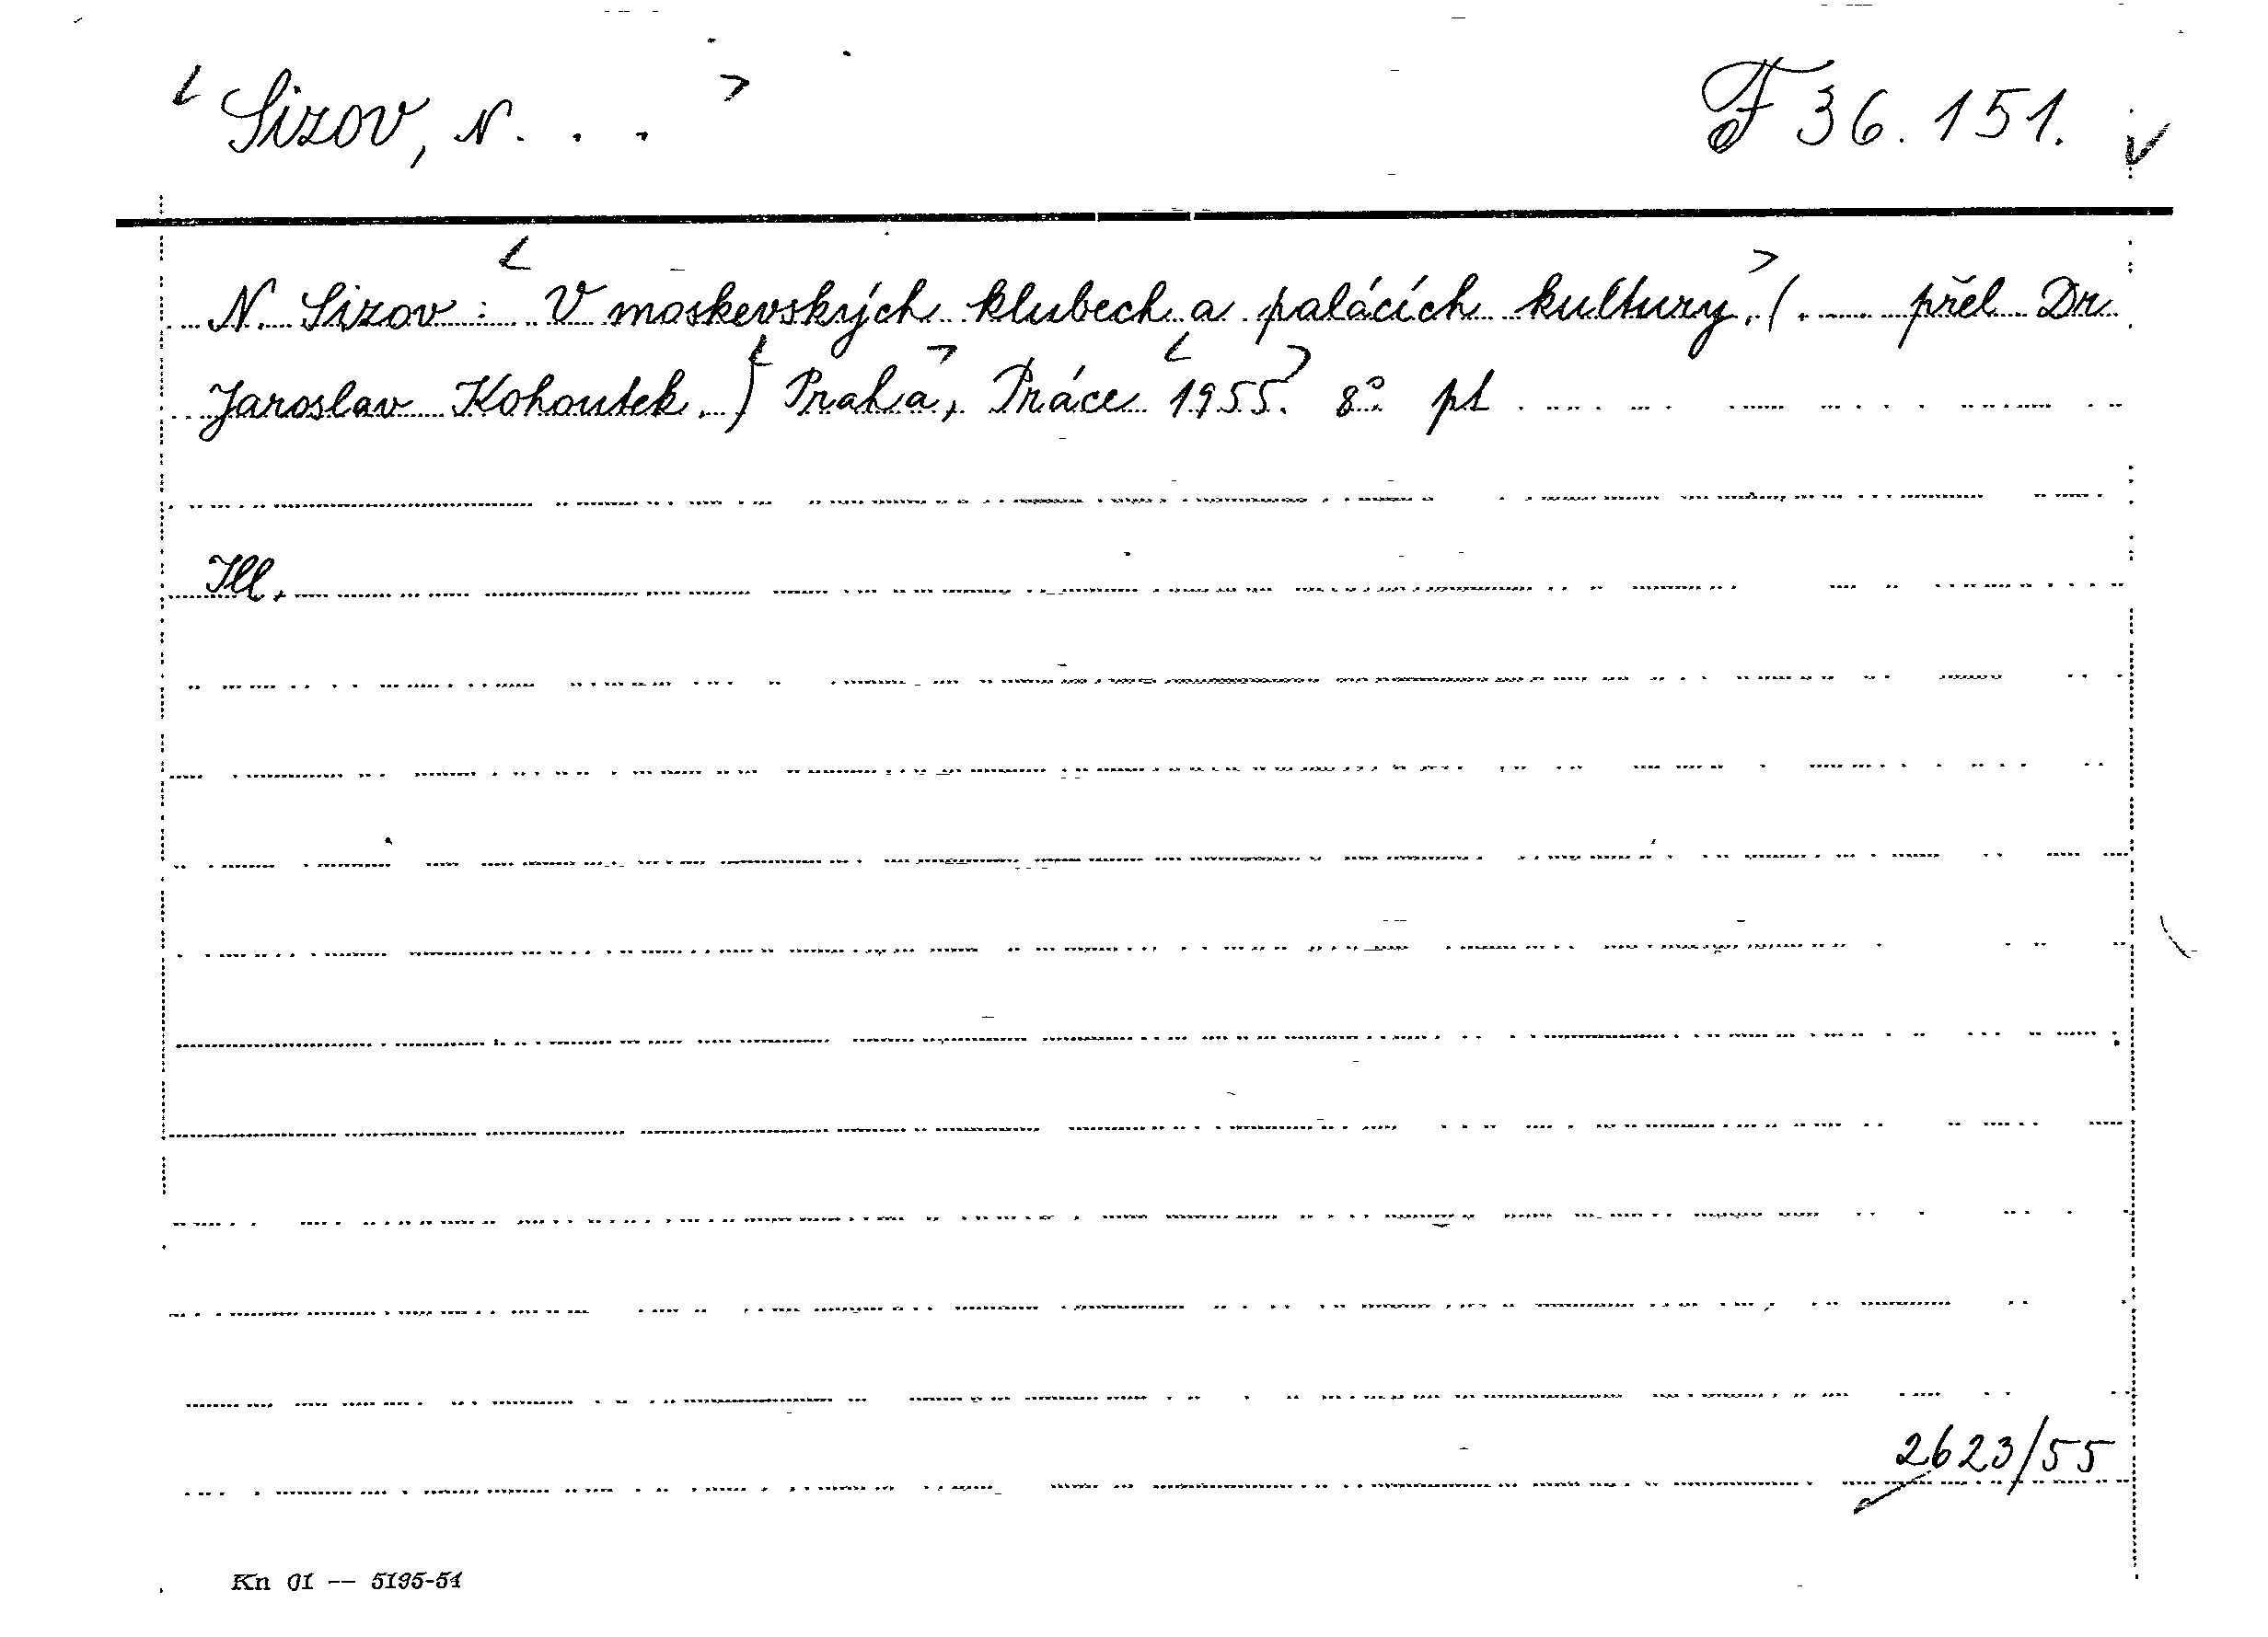 <Sizov, N. . . > F 36.151.
N. Sizov: <V moskevských klubech a palácích kultury.> (. přel Dr
Jaroslav Kohoutek.) <Praha>, Práce <1955> 8° pt
Ill.
2623/55
Kn 01 -- 5195-54